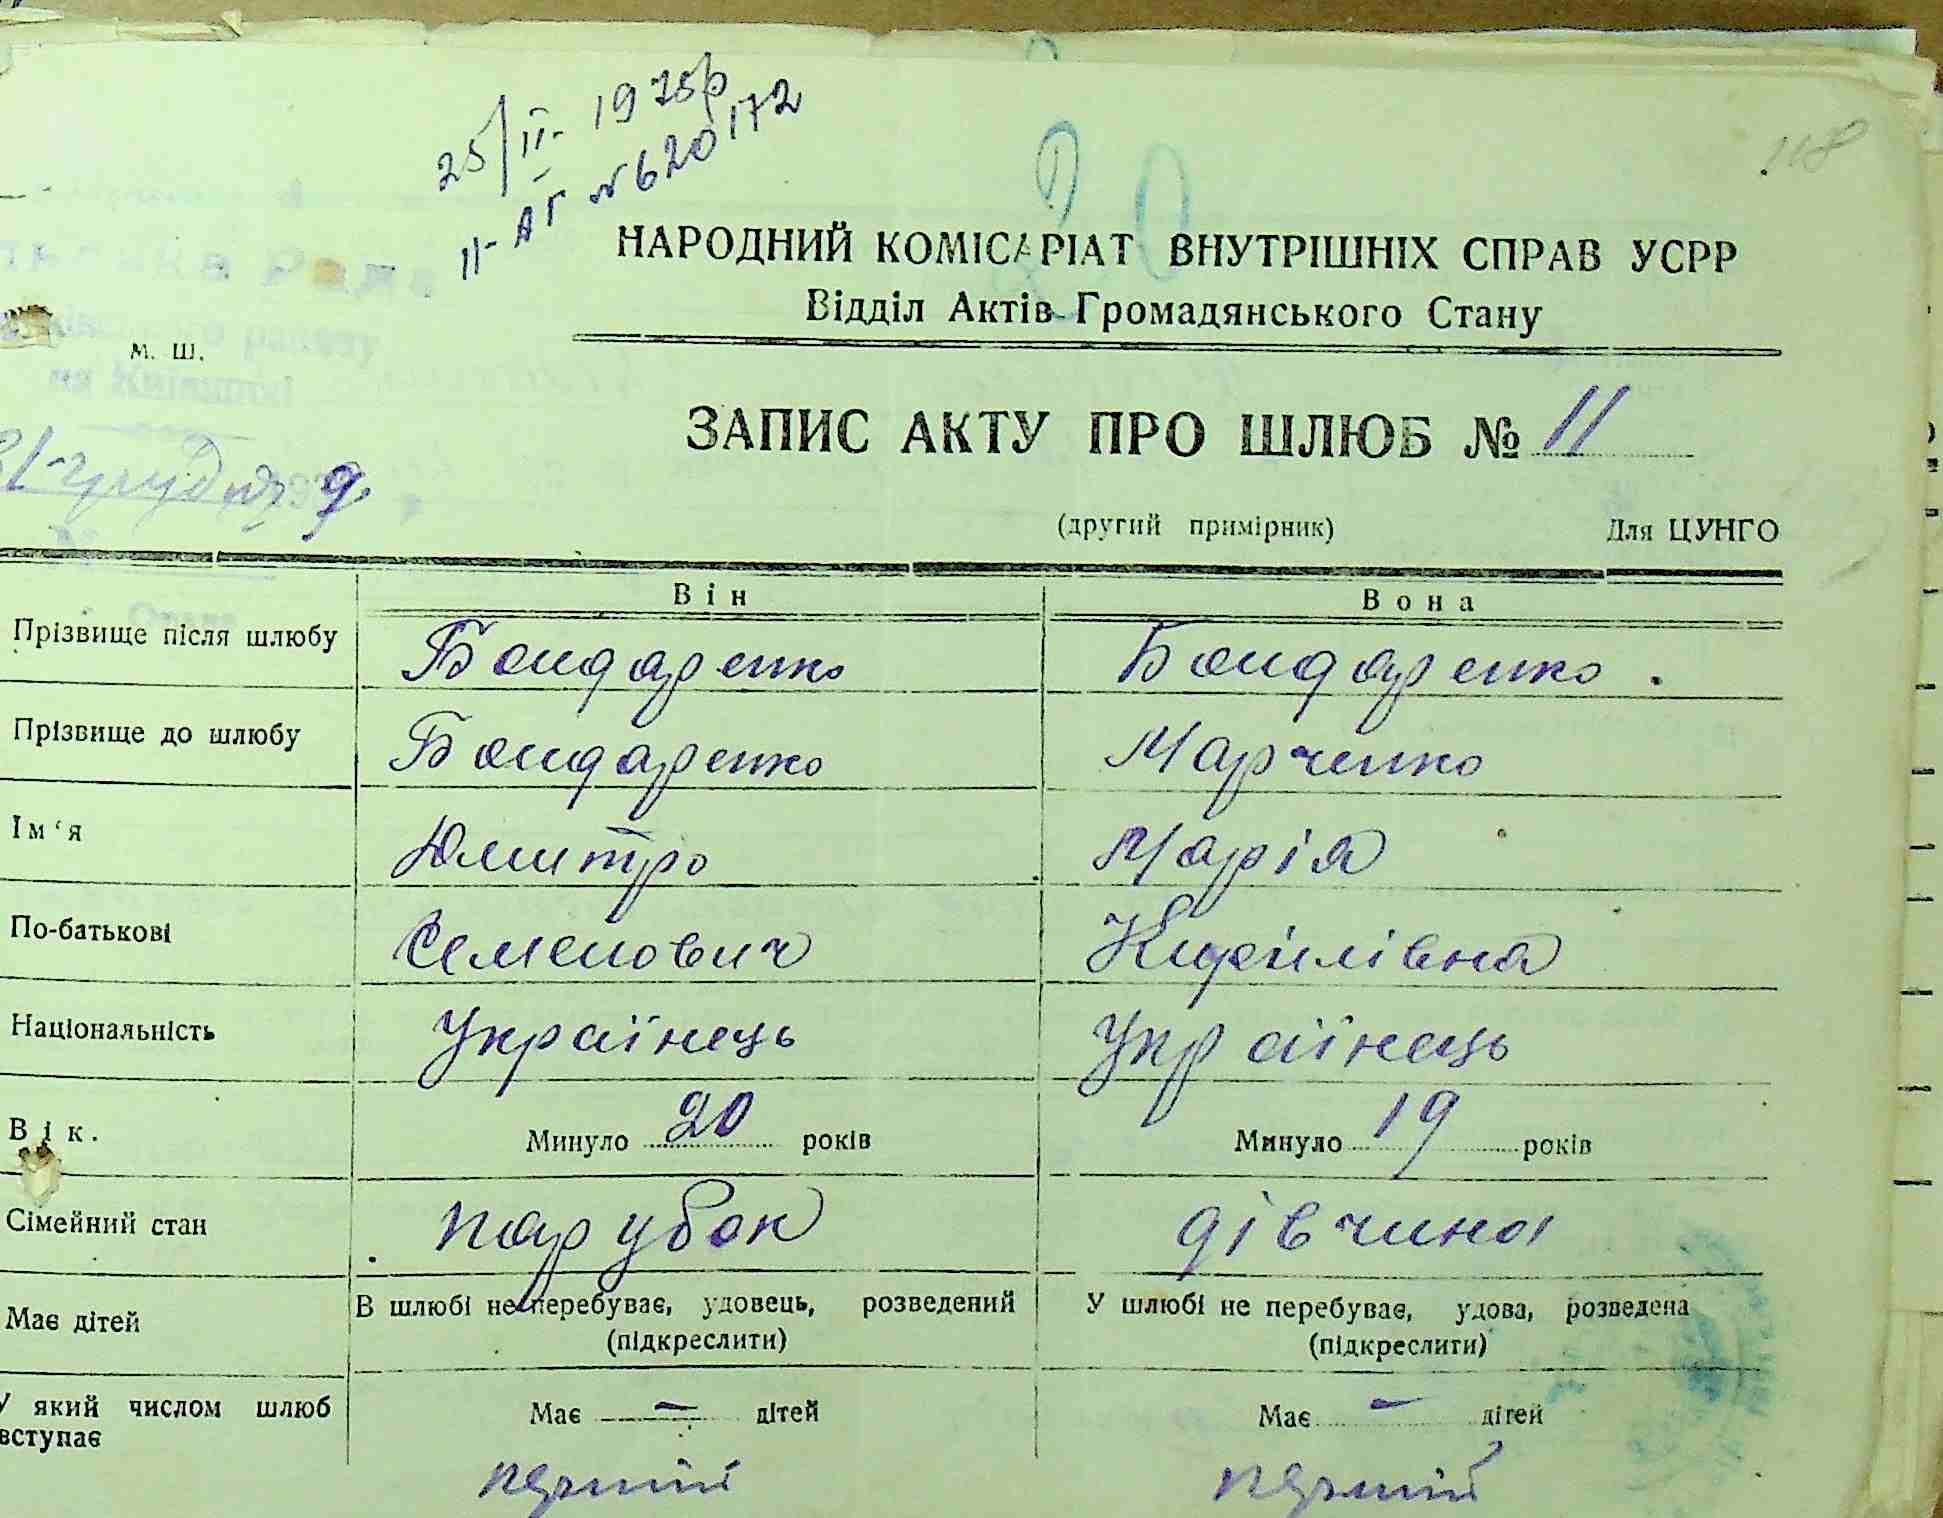 25/II- 1975р
II-АГ № 620172
118
НАРОДНИЙ КОМІСАРІАТ ВНУТРІШНІХ СПРАВ УСРР
Відділ Актів Громадянського Стану
м. ш.
ЗАПИС АКТУ ПРО ШЛЮБ № 11
(другий примірник) Для ЦУНГО
Він Вона
Прізвище після шлюбу Бондаренко Бондаренко.
Прізвище до шлюбу Бондаренко Марченко
Ім‘я Дмитро Марія
По-батькові Семенович Кирилівна
Національність Українець Українець
Вік. Минуло 20 років Минуло 19 років
Сімейний стан парубок дівчина
Має дітей В шлюбі не перебуває, удовець, розведений У шлюбі не перебуває, удова, розведена
(підкреслити) (підкреслити)
У який числом шлюб Має – дітей Має – дітей
вступає
перший перший